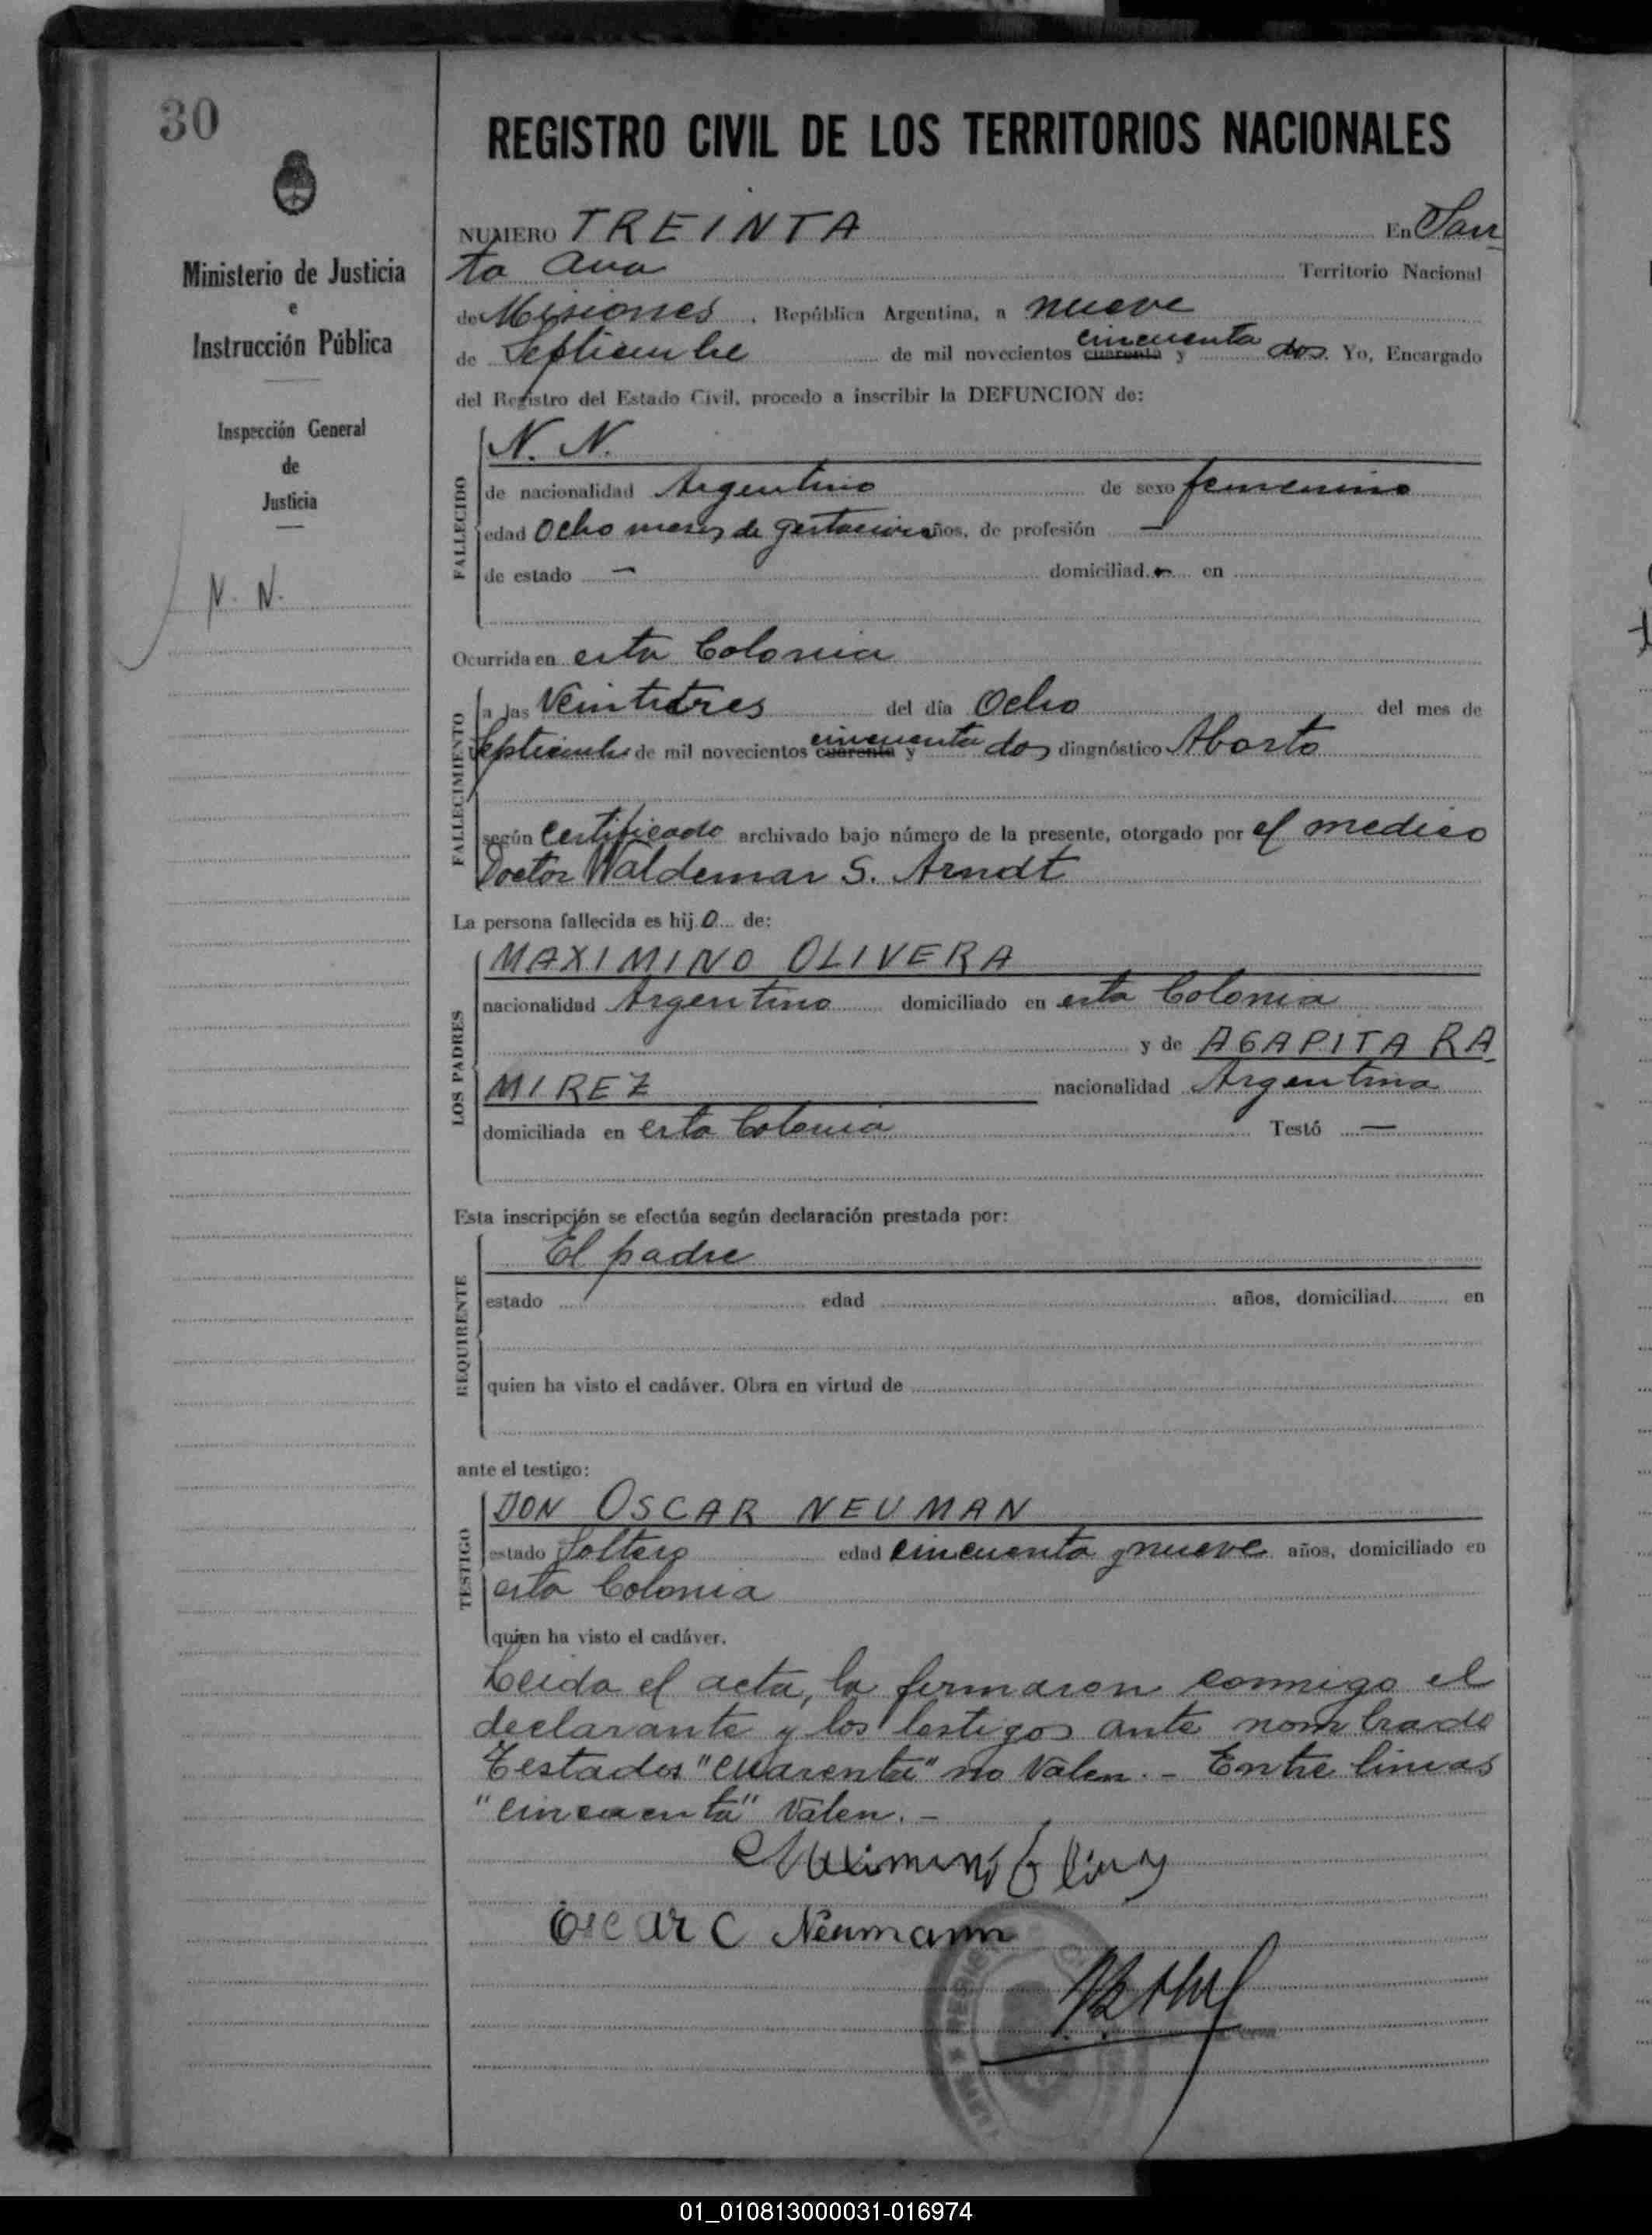 30
Ministerio de Justicia
e
Instrucción Pública
Inspección General
de
Justicia
N. N.
REGISTRO CIVIL DE LOS TERRITORIOS NACIONALES
NUMERO TREINTA En San
ta Ana Territorio Nacional
de Misiones, República Argentina, a nueve
de Septiembre de mil novecientos cuarenta cincuenta y dos. Yo, Encargado
del Registro del Estado Civil, procedo a inscribir la DEFUNCION de:
FALLECIDO
N. N.
de nacionalidad Argentino de sexo femenino
edad Ocho meses de gestacion años, de profesión —
de estado — domiciliad - en
Ocurrida en esta Colonia
FALLECIMIENTO
a las Veintitres del día Ocho del mes de
Septiembre de mil novecientos cuarenta cincuenta y dos diagnóstico Aborto
según Certificado archivado bajo número de la presente, otorgado por el medico
Doctor Waldemar S. Arndt
La persona fallecida es hij o de:
LOS PADRES
MAXIMINO OLIVERA
nacionalidad Argentino domiciliado en esta Colonia
y de AGAPITA RA
MIREZ nacionalidad Argentina
domiciliada en esta Colonia Testó —
Esta inscripción se efectúa según declaración prestada por:
REQUIRENTE
El padre
estado edad años, domiciliad en
quien ha visto el cadáver. Obra en virtud de
ante el testigo:
TESTIGO
DON OSCAR NEUMAN
estado Soltero edad cincuenta y nueve años, domiciliado en
esta Colonia
quien ha visto el cadáver.
Leida el acta, la firmaron conmigo el
declarante y los testigos ante nombrado
Testados "cuarenta" no Valen. - Entre lineas
"cincuenta" Valen. -
Oscar C Neumann
01_010813000031-016974